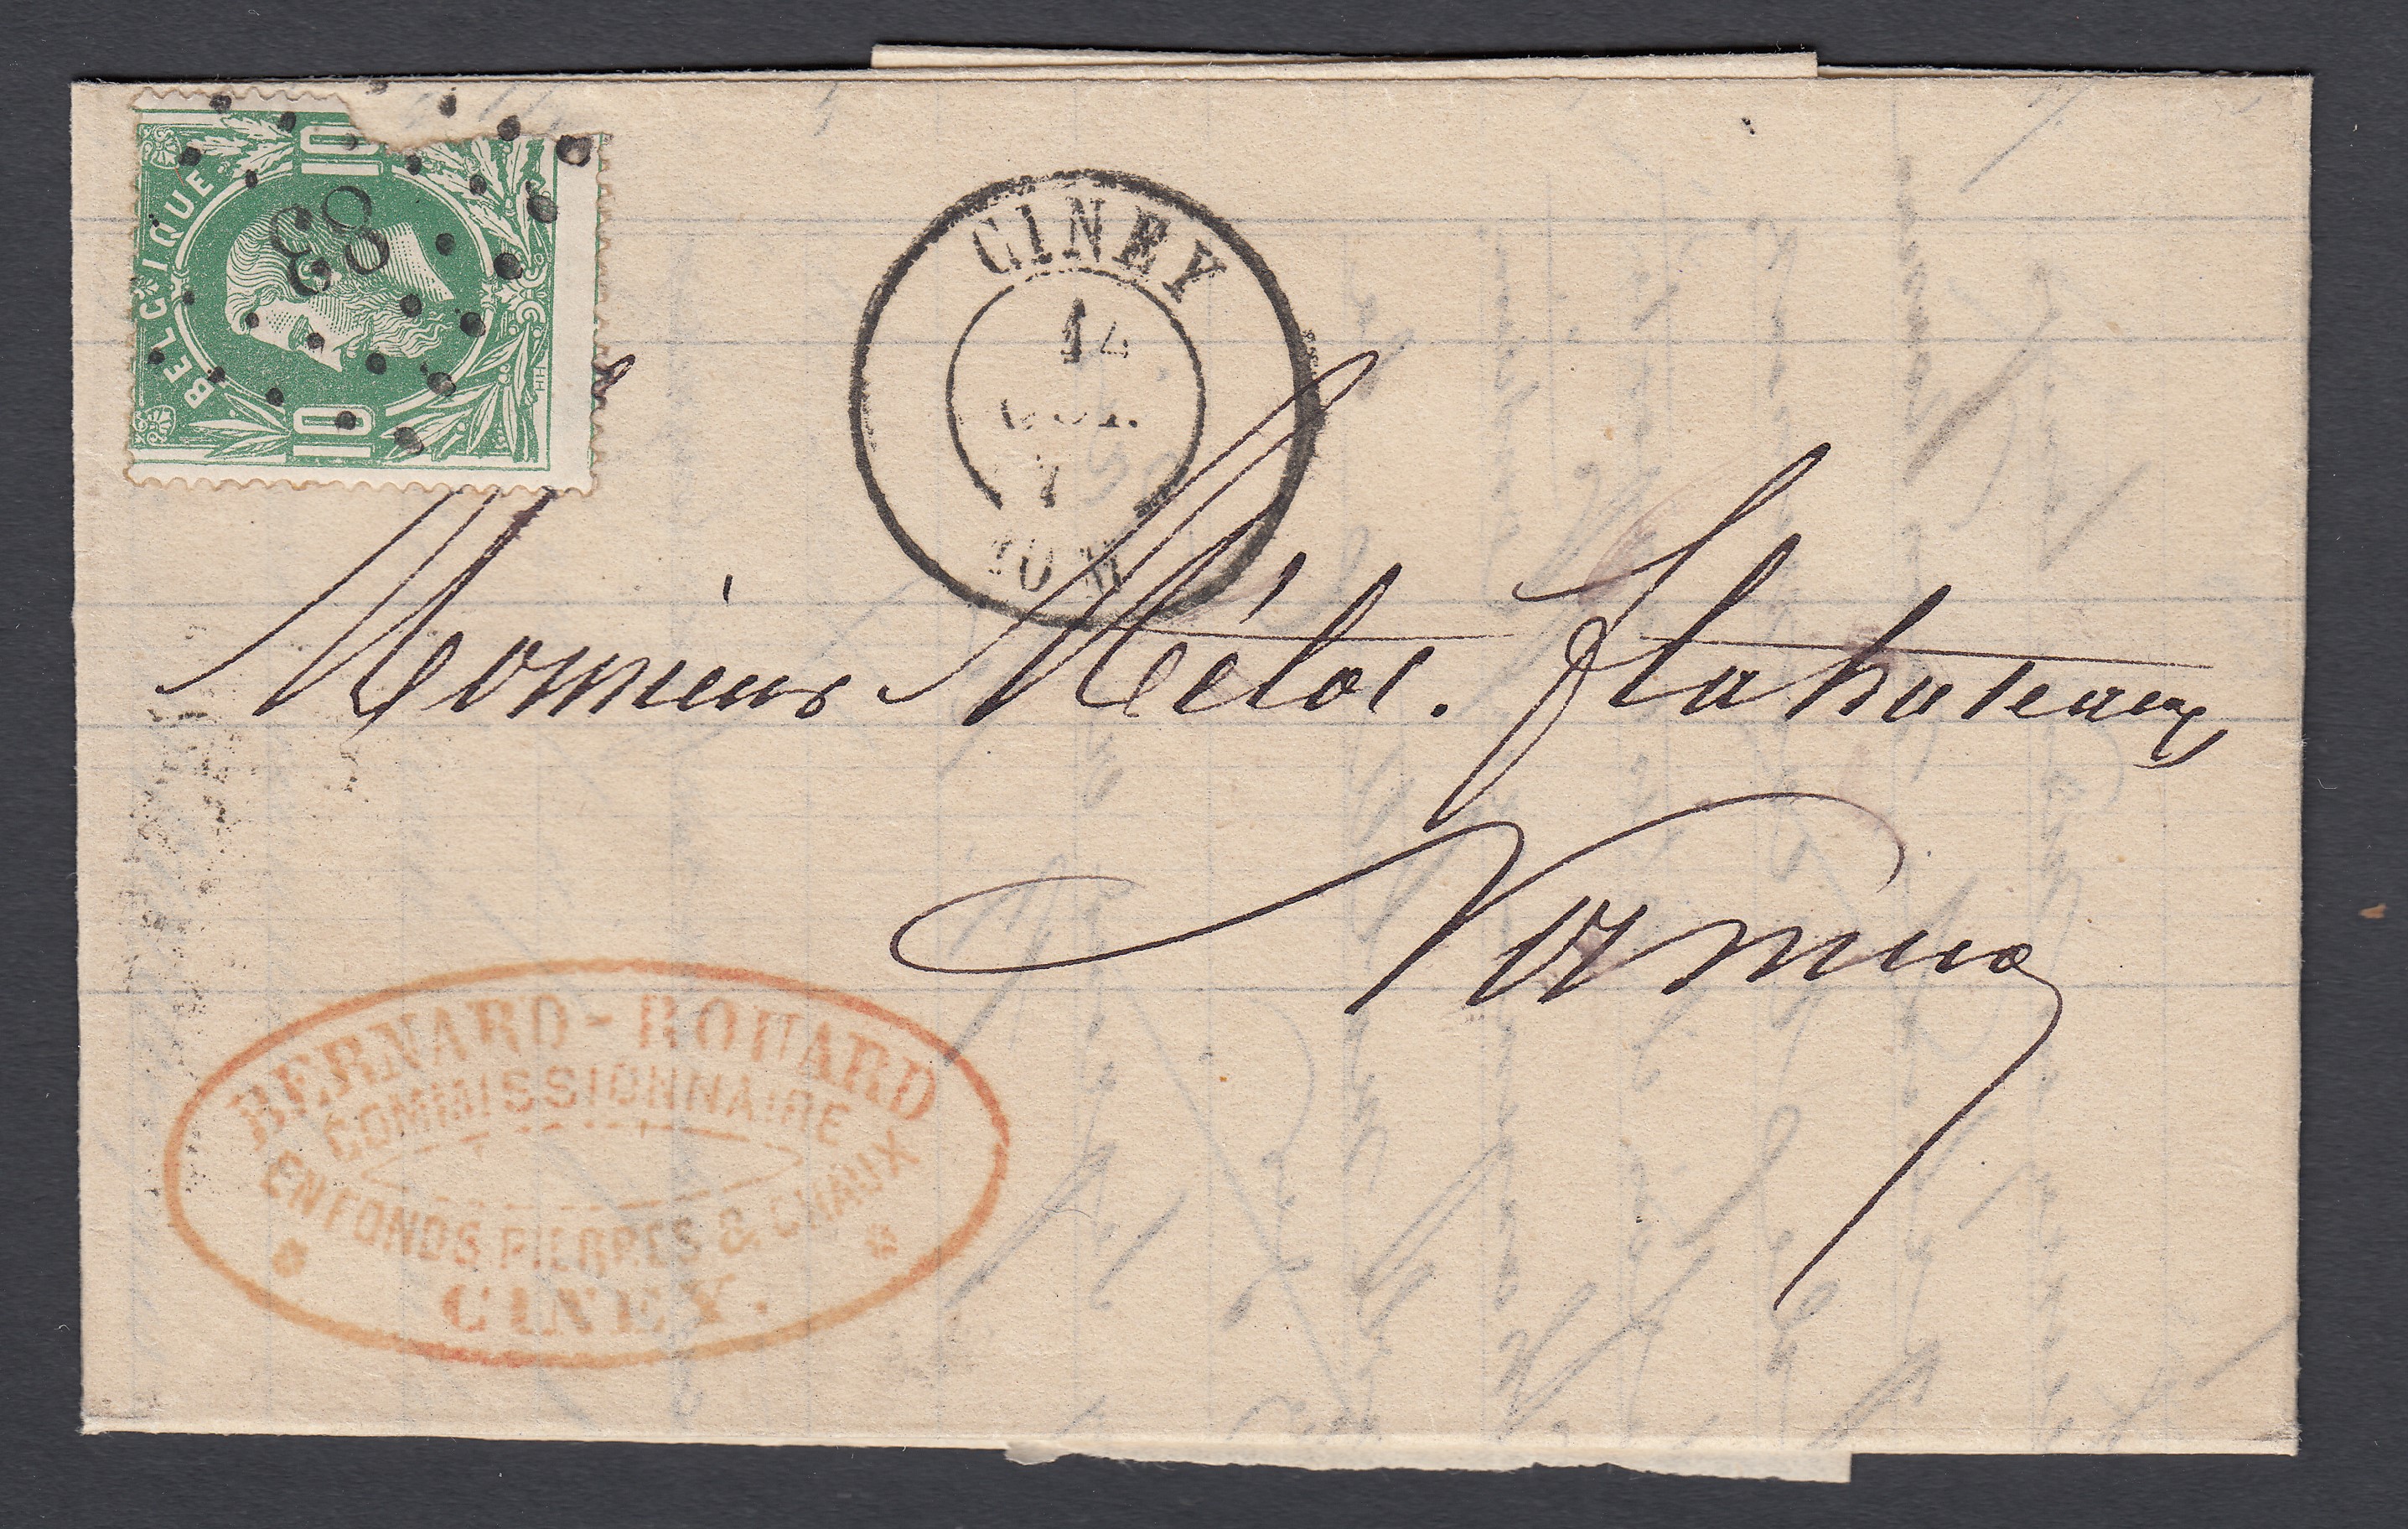 BELGIQUE
10
10
83
HH
CINEY
14
7
10 M
Monsieur Mélot.
Namur
BERNARD-ROUARD
COMMISSIONNAIRE
EN FONDS PIERRES & CHAUX
CINEY.